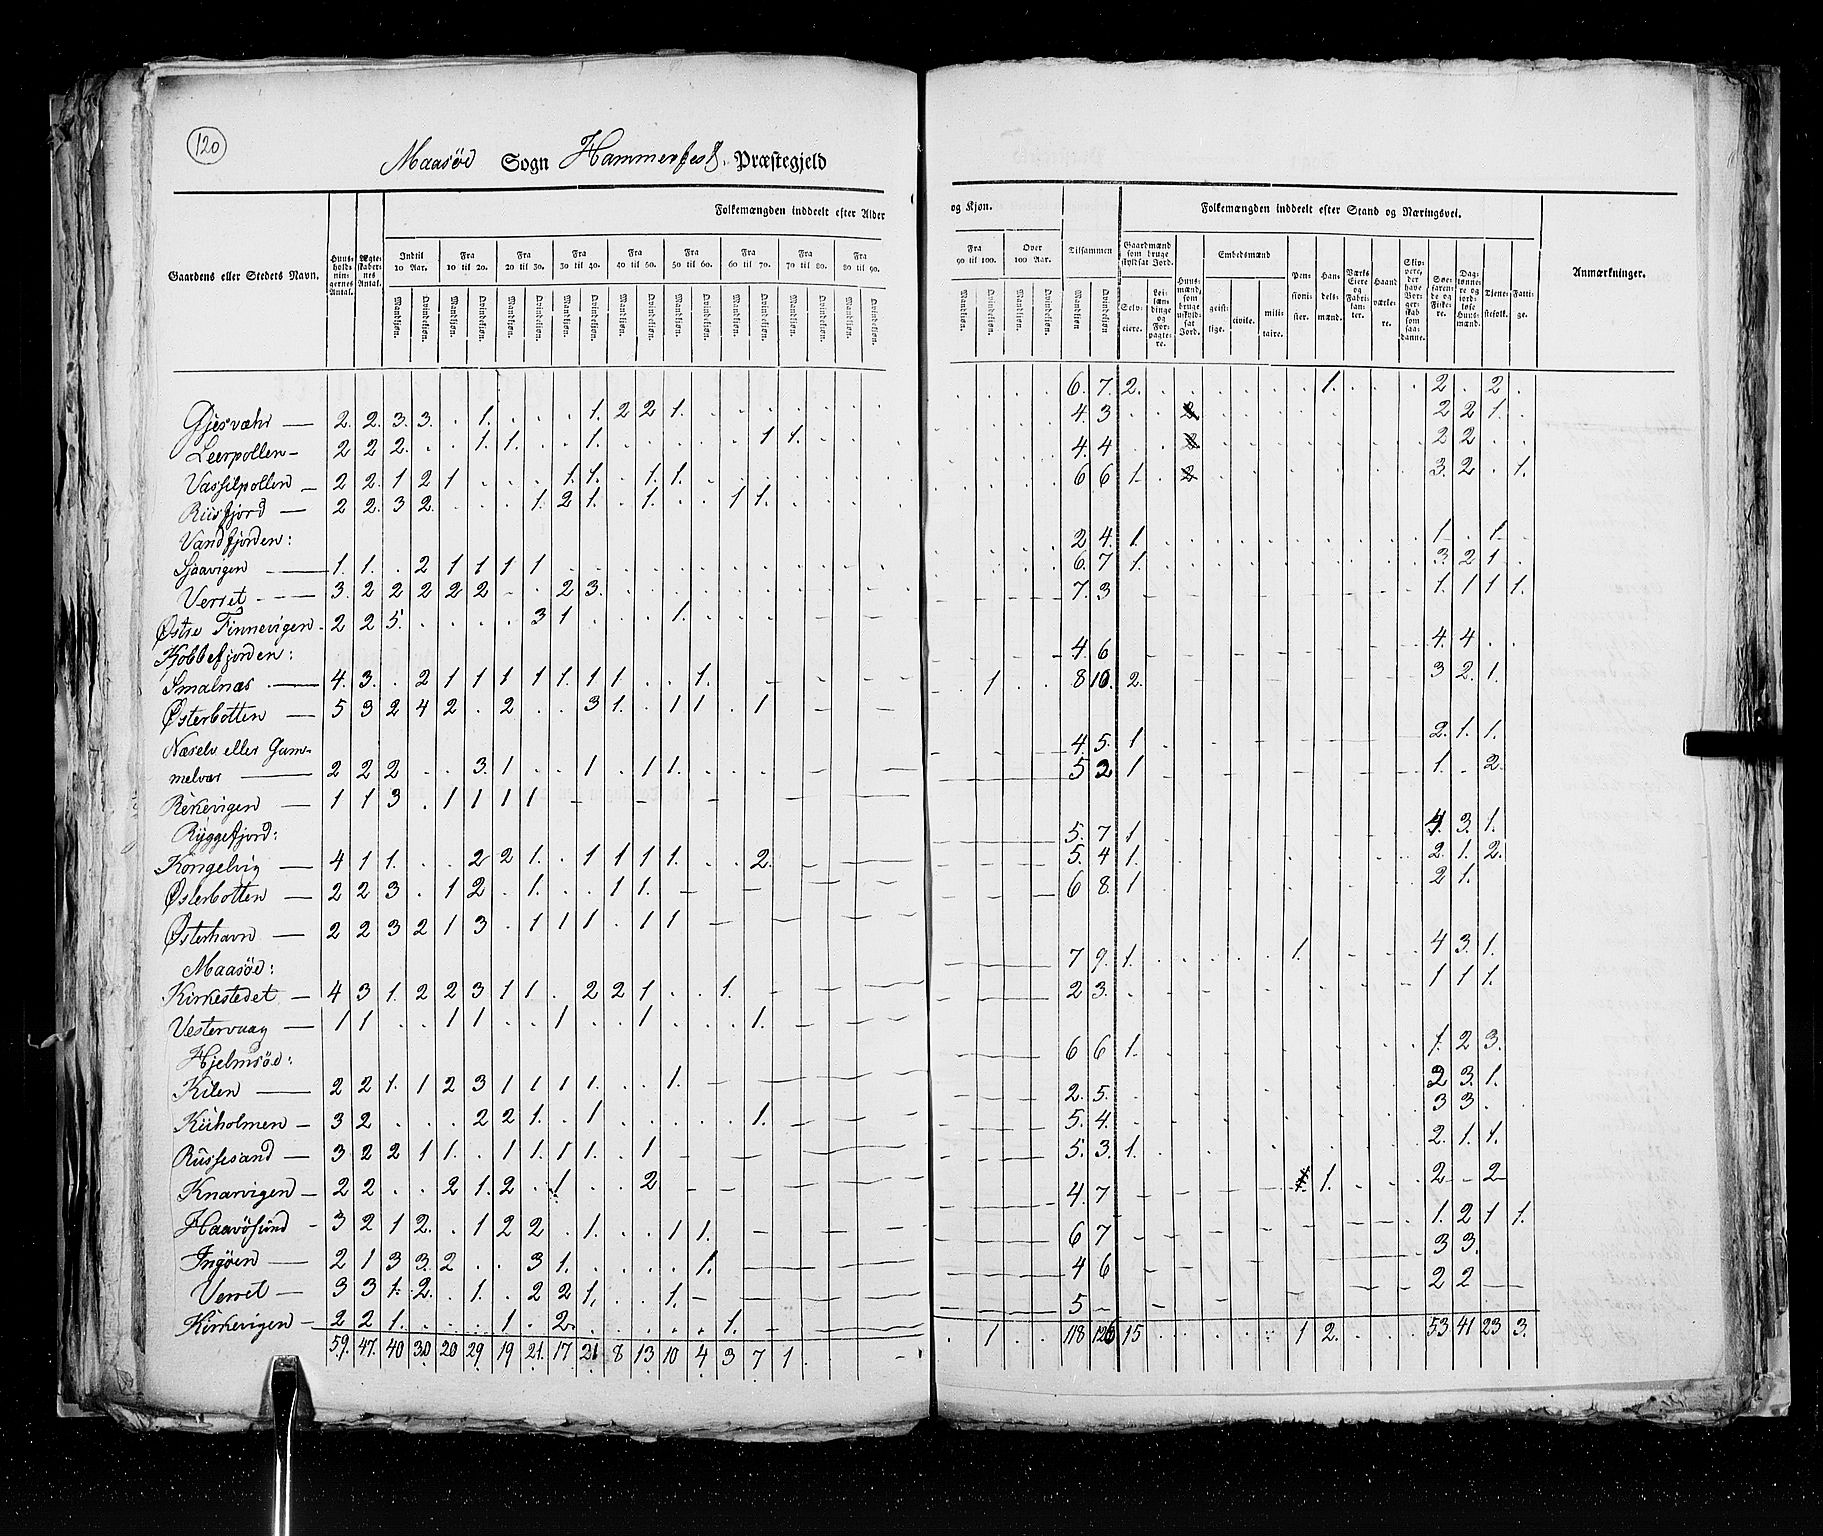 120
Maasöe Sogn Hammerfest Præstegjeld
Folkemængden inddeelt efter Alder
og Kjøn.
Folkemængden inddeelt efter Stand og Næringsvei.
Gaardens eller Stedets Navn.
Huusholdningernes Antal.
Ægteskabernes Antal.
Indtil 10 Aar.
Fra 10 til 20.
Fra 20 til 30.
Fra 30 til 40.
Fra 40 til 50.
Fra 50 til 60.
Fra 60 til 70.
Fra 70 til 80.
Fra 80 til 90.
Fra 90 til 100.
Over 100 Aar.
Tilsammen
Mandkjøn. Qvindekjøn.
Gaardmænd som bruge skyldsat Jord.
Selveiere.
Leilændinge og Forpagtere.
Huusmænd, som bruge uskyldsat Jord.
Embedsmænd
geistlige.
civile.
militaire.
Pensionister.
Handelsmænd.
Værks Eiere og Fabrikanter.
Haandværkere.
Skippere, der have Borgerskab som saadanne.
Søefarende og Fiskere.
Daglønnere og jordløse Huusmænd.
Tjenestefolk.
Fattige.
Anmærkninger.
Gjesvæhr — 2. 2. 3. 3. . 1. . . . 1. 2 2 1. 6. 7. 2. 1. 2 . 2
Leerpollen — 2 2 2. . . 1. 1. . . 1. 1 1. 4. 3 2 2 1.
Vassilpollen — 2 2. 1 2 1 . . . 1. 1. . 1. 1. 4. 4 2 2
Riisfjord — 2 2. 3 2. . . . 1. 2 1. . 1. . . 1 1. 6 6 1. 3. 2 . 1.
Vandfjorden:
Sjaavigen — 1. 1. . 2 1 1 1 1 2 4. 1. 1. . 1.
Verret — 3. 2 2 2 2 2 . . 2 3. 6. 7 1. 3. 2 1
Østre Finnevigen — 2 2 5. . . . . 3 1 . . . 1. 7. 3 1. 1 1 1.
Kobbefjorden:
Smalnæs — 4. 3. . 2 1 1 1 1 1. 1 1 . . 1. 4. 6 4. 4
Østerbotten — 5 3 2 4 2 . 2 . . 3 1. . 1 1 . 1 1 8 10. 2. 3 2. 1.
Næselv eller Gammelvær — 2 2 2 . . 3. 1 . . 1 . 1 1. 4. 5. 1 2. 1. 1.
Rekevigen — 1 1 3 . 1 1 1 1 5 2 1 1. . 2.
Ryggefjord:
Kongelvig — 4 1 1. . . 2 2 1. . 1 1 1 1. . . 2. 5. 7 1 4. 3. 1.
Østerbotten — 2 2 3 . 1 2 . 1. . . 1 1. 5. 4 1. 2. 1. 2.
Østerhavn — 2 2 3 2 1 3 . 1 1 1 . 1 1 6 8. 1 2 1.
Maasöe:
Kirkestedet — 4 3 1. 2 2 3 1 1 . 2 2 1 . . 1. 7 9. 1. 1. 4 3. 1.
Vestervaag — 1 1 . . 1 1 . . 1 . . 1. . . . 1. 2 3. 1 1 1.
Hjelmsöe:
Kilen — 2 2 1. 1 2 3 1 1 1 1. . . 1. 6 6 1. 1. 2 3.
Kiiholmen — 3 2 . . . 2 2 1. . 1 1. 2. 5. 2 3. 1.
Russesand — 3 2 2 1 1. . 1 1. 1 1. . 1 5. 4. 3 3.
Knarvigen — 2 2 . . 2 1. 2 . 1 . . 2 5. 3. 1. 2. 1. 1.
Haavösund — 3 2 1 2. . 1 2 2 . 1. . . 1 1. 4. 7 1. 2 2
Ingöen — 2 1 3 3. 2 . . 3 1. . . . . 1. 6 7 1. 2 1 1.
Verret — 3 3 1. 2. . 1. . 2 2 1. . . 1. 4 6 3 3.
Kirkevigen — 2 2 1. . . . 1 . 2. 1. 5 2 2
59. 47. 40 30 20 29. 19 21. 17 21 8 13 10 4 3 7 1 . 1 118 126 15 1 2. 53 41 23 3.